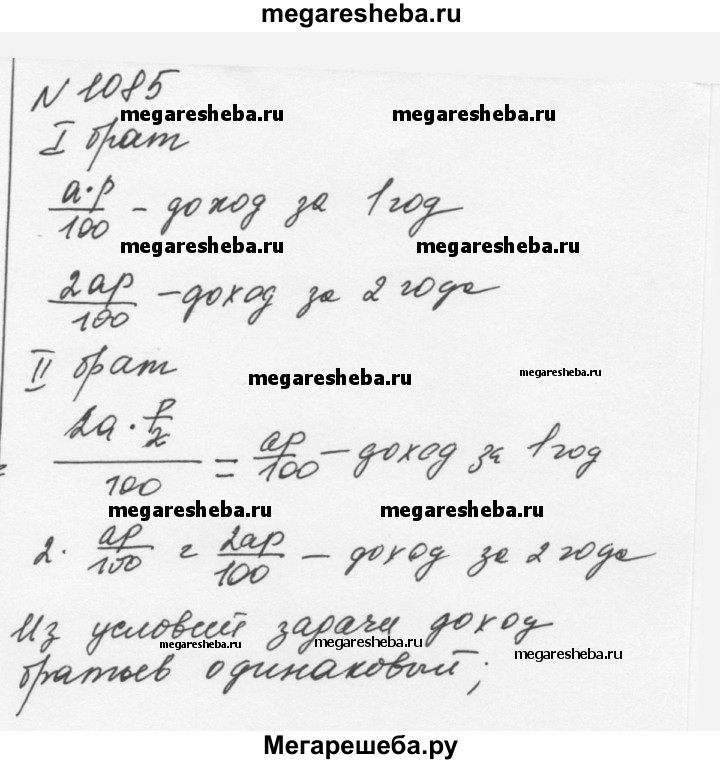 megaresheba.ru
N 1085
megaresheba.ru megaresheba.ru
I брат
a·p/100 - доход за 1 год
megaresheba.ru megaresheba.ru
2ap/100 - доход за 2 года
II брат
megaresheba.ru megaresheba.ru
2a · p/2 / 100 = ap/100 - доход за 1 год
megaresheba.ru megaresheba.ru
2 · ap/100 = 2ap/100 - доход за 2 года
Из условий задачи доход
megaresheba.ru megaresheba.ru megaresheba.ru
братьев одинаковый;
megaresheba.ru
Мегарешеба.ру